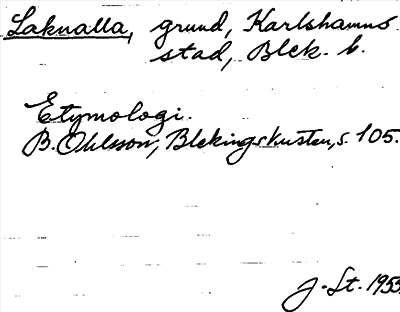 Laknalla, grund, Karlshamns
stad, Blek. l.
Etymologi.
B. Ohlsson, Blekingskusten, s. 105.
J. St. 1955